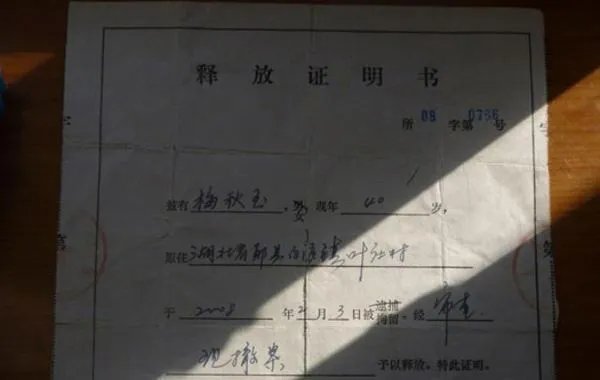 释放证明书
所 09 字第 0786 号
兹有 梅秋玉 ,男女 现年 40 岁,
原住 湖北省郧县白浪镇叶仁村
于 2008 年 2 月 3 日被 逮捕 拘留,经 审查
现撤案, 予以释放。特此证明。
字
第